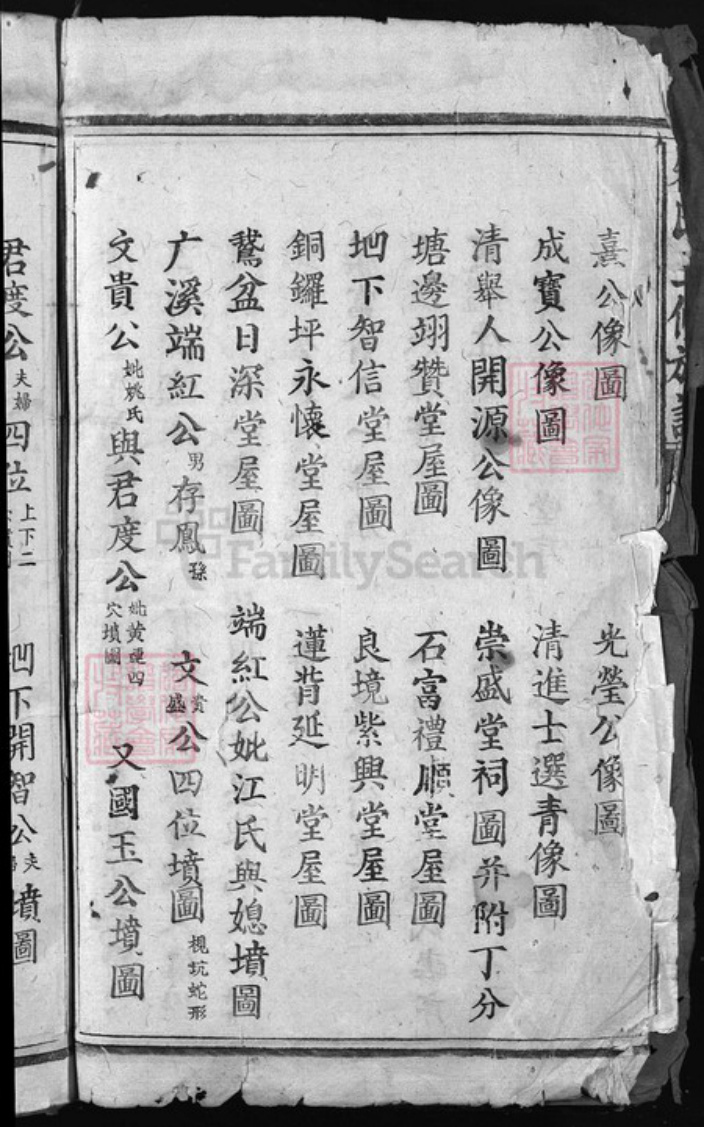 熹公像圖　光瑩公像圖
成寶公像圖　清進士選青像圖
清舉人開源公像圖　崇盛堂祠圖并附丁分
塘邊翊贊堂屋圖　石富禮順堂屋圖
地下智信堂屋圖　良境紫興堂屋圖
銅鑼坪永懷堂屋圖　蓮背延明堂屋圖
鵞盆日深堂屋圖　端紅公妣江氏與媳墳圖
广溪端紅公男存鳳孫文貴盛公四位墳圖 梘坑蛇形
文貴公妣姚氏與君度公妣黄連四穴墳圖　又國玉公墳圖
君度公夫婦四位上下二　地下開智公夫 墳圖
FamilySearch